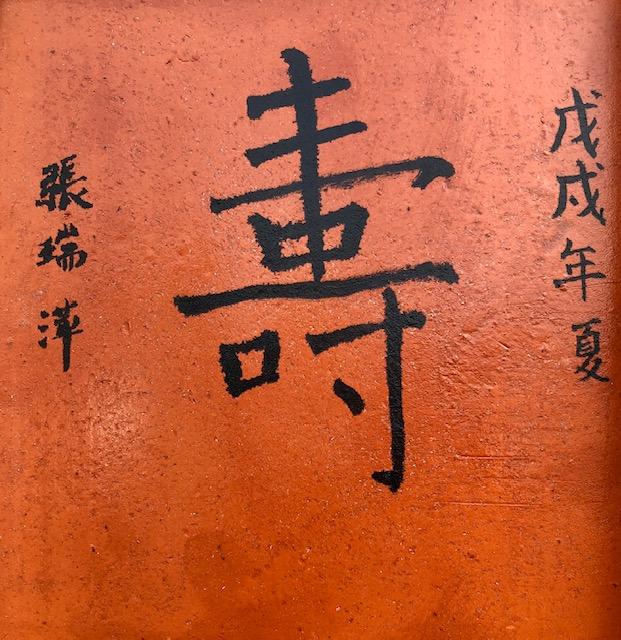 戊戌年夏
壽
張瑞萍